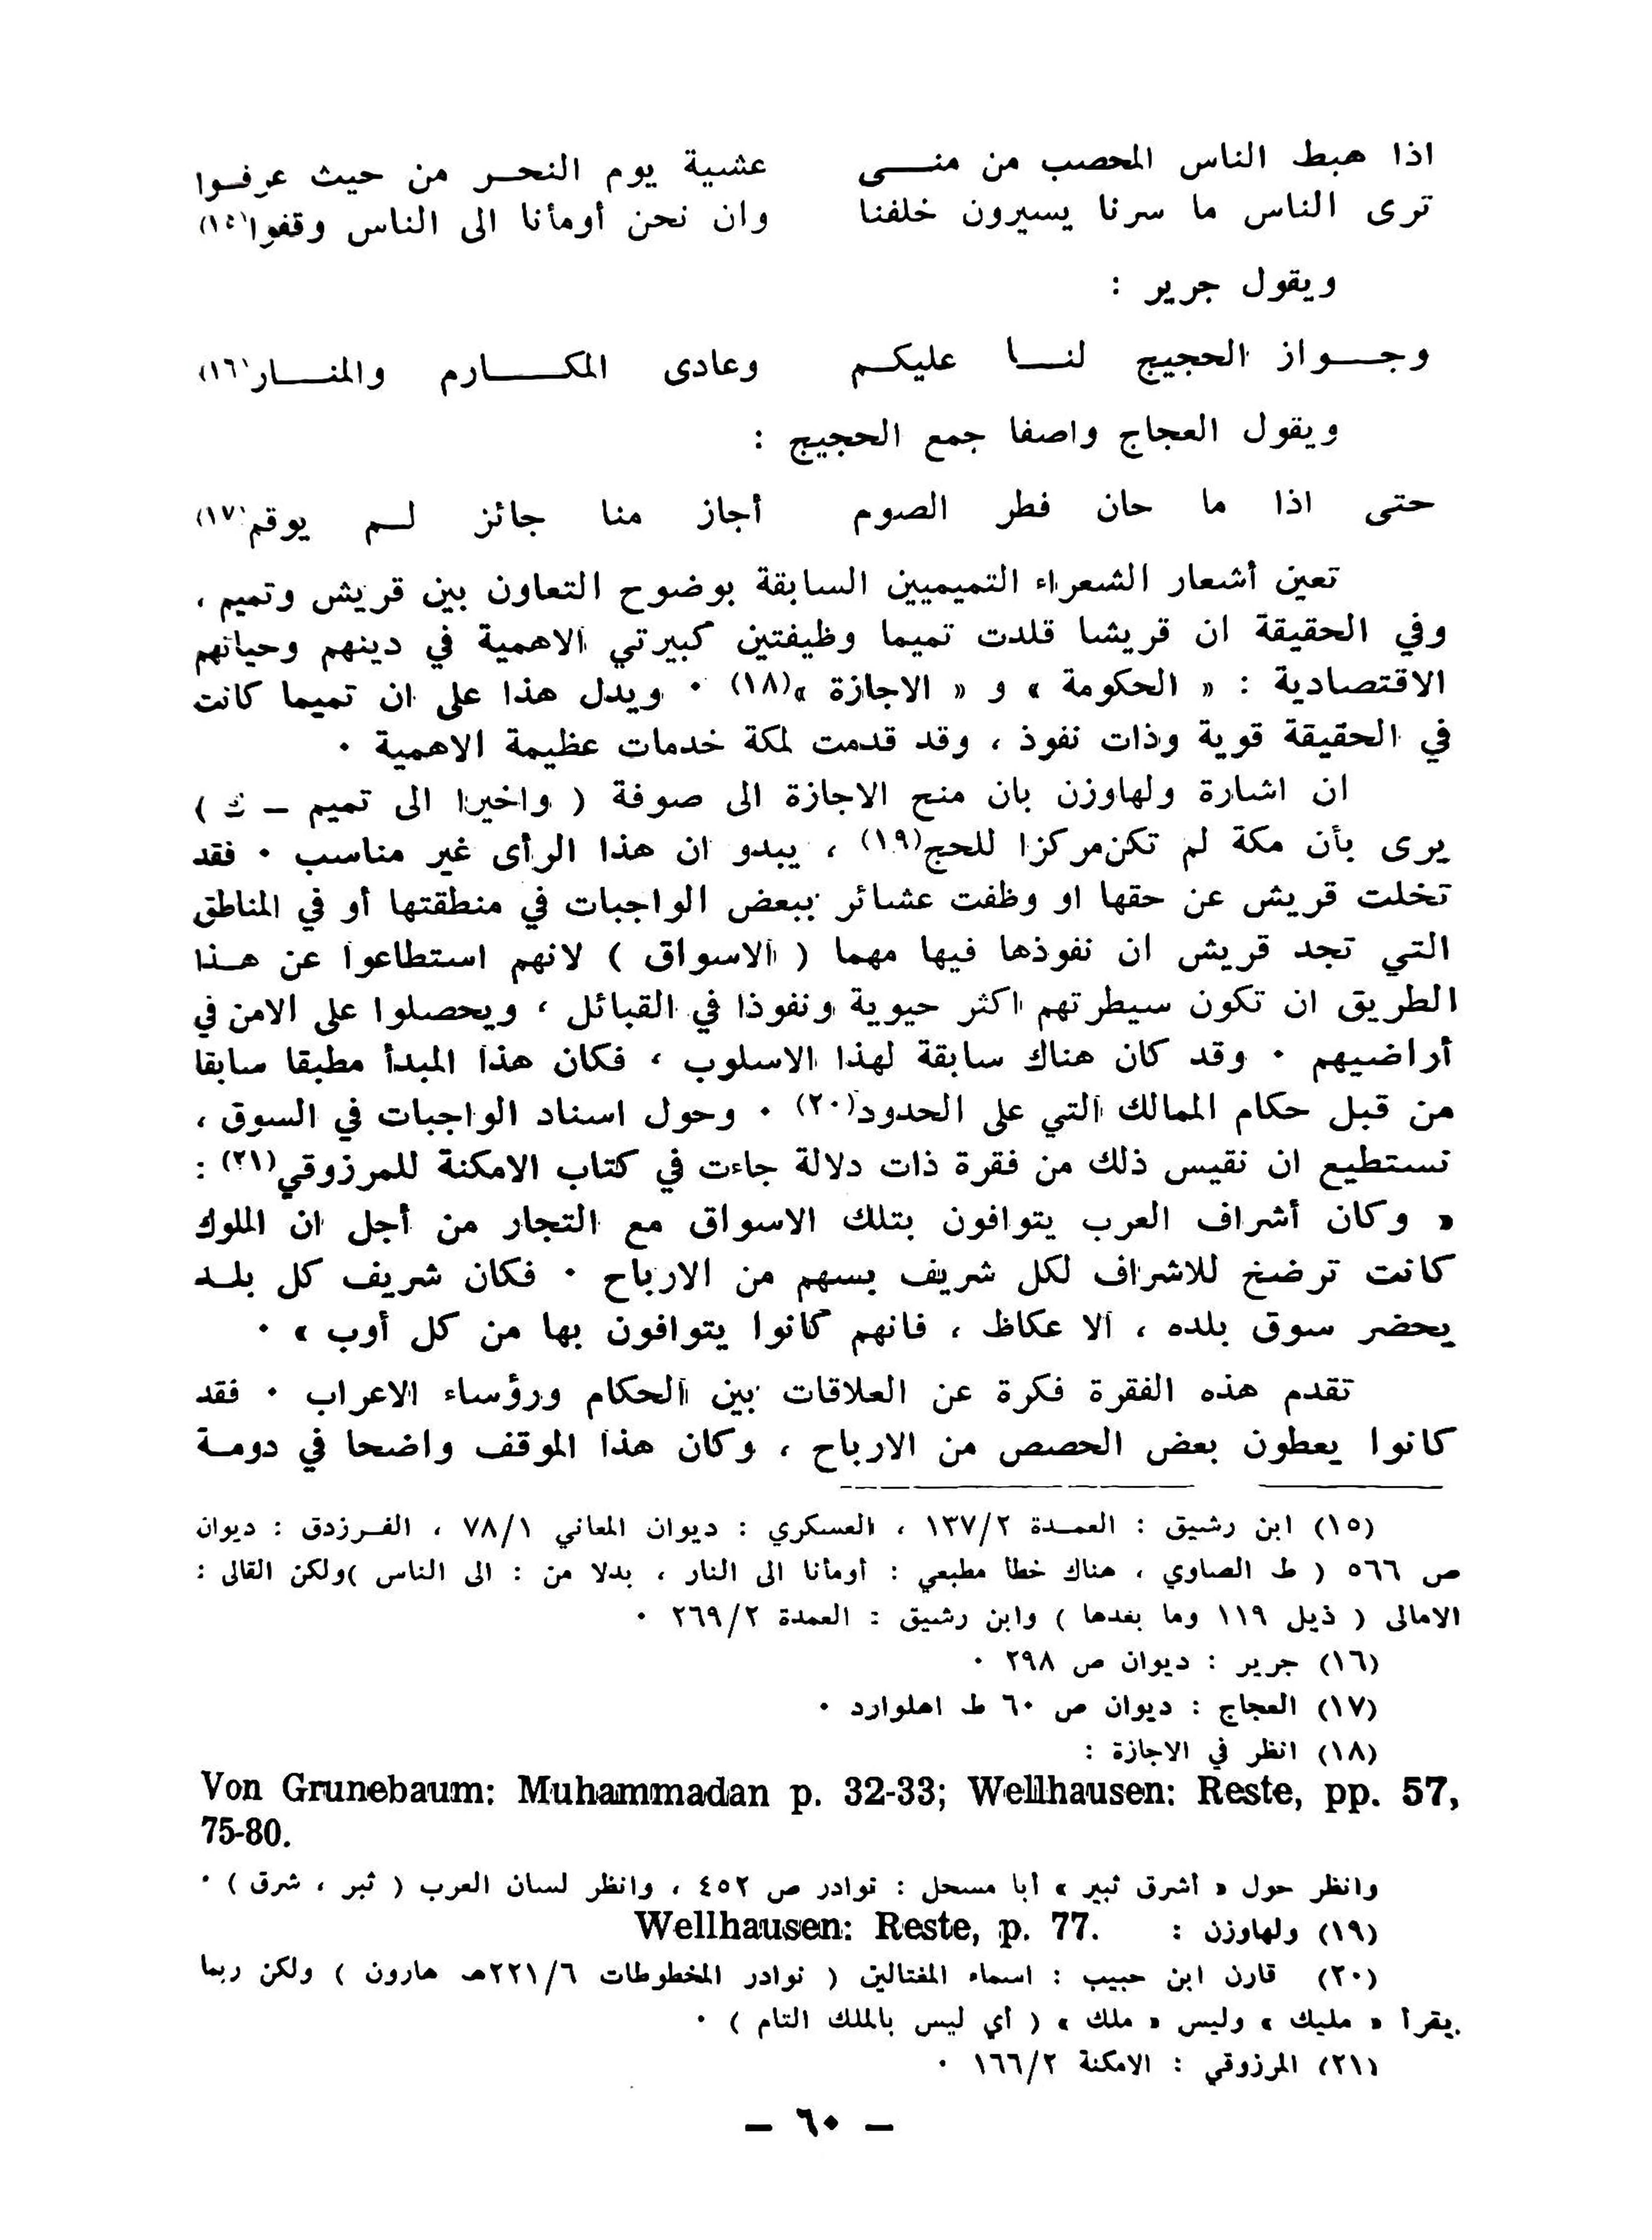 اذا هبط الناس المحصب من منـــى عشية يوم النحـر من حيث عرفـوا
ترى الناس ما سرنا يسيرون خلفنا وان نحن أومأنا الى الناس وقفوا(١٥)
ويقول جرير :
وجـــواز الحجيج لنـــا عليكـم وعادى المكـــارم والمنـــار(١٦)
ويقول العجاج واصفا جمع الحجيج :
حتى اذا ما حان فطر الصوم أجاز منا جائز لـم يوقم(١٧)
تعين أشعار الشعراء التميميين السابقة بوضوح التعاون بين قريش وتميم ،
وفي الحقيقة ان قريشا قلدت تميما وظيفتين كبيرتي الاهمية في دينهم وحياتهم
الاقتصادية : « الحكومة » و « الاجازة »(١٨) . ويدل هذا على ان تميما كانت
في الحقيقة قوية وذات نفوذ ، وقد قدمت لمكة خدمات عظيمة الاهمية .
ان اشارة ولهاوزن بان منح الاجازة الى صوفة ( واخيرا الى تميم – ك )
يرى بأن مكة لم تكن مركزا للحج(١٩) ، يبدو ان هذا الرأى غير مناسب . فقد
تخلت قريش عن حقها او وظفت عشائر ببعض الواجبات في منطقتها أو في المناطق
التي تجد قريش ان نفوذها فيها مهما ( الاسواق ) لانهم استطاعوا عن هـذا
الطريق ان تكون سيطرتهم اكثر حيوية ونفوذا في القبائل ، ويحصلوا على الامن في
أراضيهم . وقد كان هناك سابقة لهذا الاسلوب ، فكان هذا المبدأ مطبقا سابقا
من قبل حكام الممالك التي على الحدود(٢٠) . وحول اسناد الواجبات في السوق ،
نستطيع ان نقيس ذلك من فقرة ذات دلالة جاءت في كتاب الامكنة للمرزوقي(٢١) :
« وكان أشراف العرب يتوافون بتلك الاسواق مع التجار من أجل ان الملوك
كانت ترضخ للاشراف لكل شريف بسهم من الارباح . فكان شريف كل بلـد
يحضر سوق بلده ، الا عكاظ ، فانهم كانوا يتوافون بها من كل أوب » .
تقدم هذه الفقرة فكرة عن العلاقات بين الحكام ورؤساء الاعراب . فقد
كانوا يعطون بعض الحصص من الارباح ، وكان هذا الموقف واضحا في دومـة
(١٥) ابن رشيق : العمـدة ١٣٧/٢ ، العسكري : ديوان المعاني ٧٨/١ ، الفـرزدق : ديوان
ص ٥٦٦ ( ط الصاوي ، هناك خطأ مطبعي : أومأنا الى النار ، بدلا من : الى الناس )ولكن القالى :
الامالى ( ذيل ١١٩ وما بعدها ) وابن رشيق : العمدة ٢٦٩/٢ .
(١٦) جرير : ديوان ص ٢٩٨ .
(١٧) العجاج : ديوان ص ٦٠ ط اهلوارد .
(١٨) انظر في الاجازة :
Von Grunebaum: Muhammadan p. 32-33; Wellhausen: Reste, pp. 57,
75-80.
وانظر حول « أشرق ثبير » أبا مسحل : نوادر ص ٤٥٢ ، وانظر لسان العرب ( ثبر ، شرق ) .
(١٩) ولهاوزن : Wellhausen: Reste, p. 77.
(٢٠) قارن ابن حبيب : اسماء المغتالين ( نوادر المخطوطات ٢٢١/٦هـ هارون ) ولكن ربما
يقرأ « مليك » وليس « ملك » ( أي ليس بالملك التام ) .
(٢١) المرزوقي : الامكنة ١٦٦/٢ .
– ٦٠ –